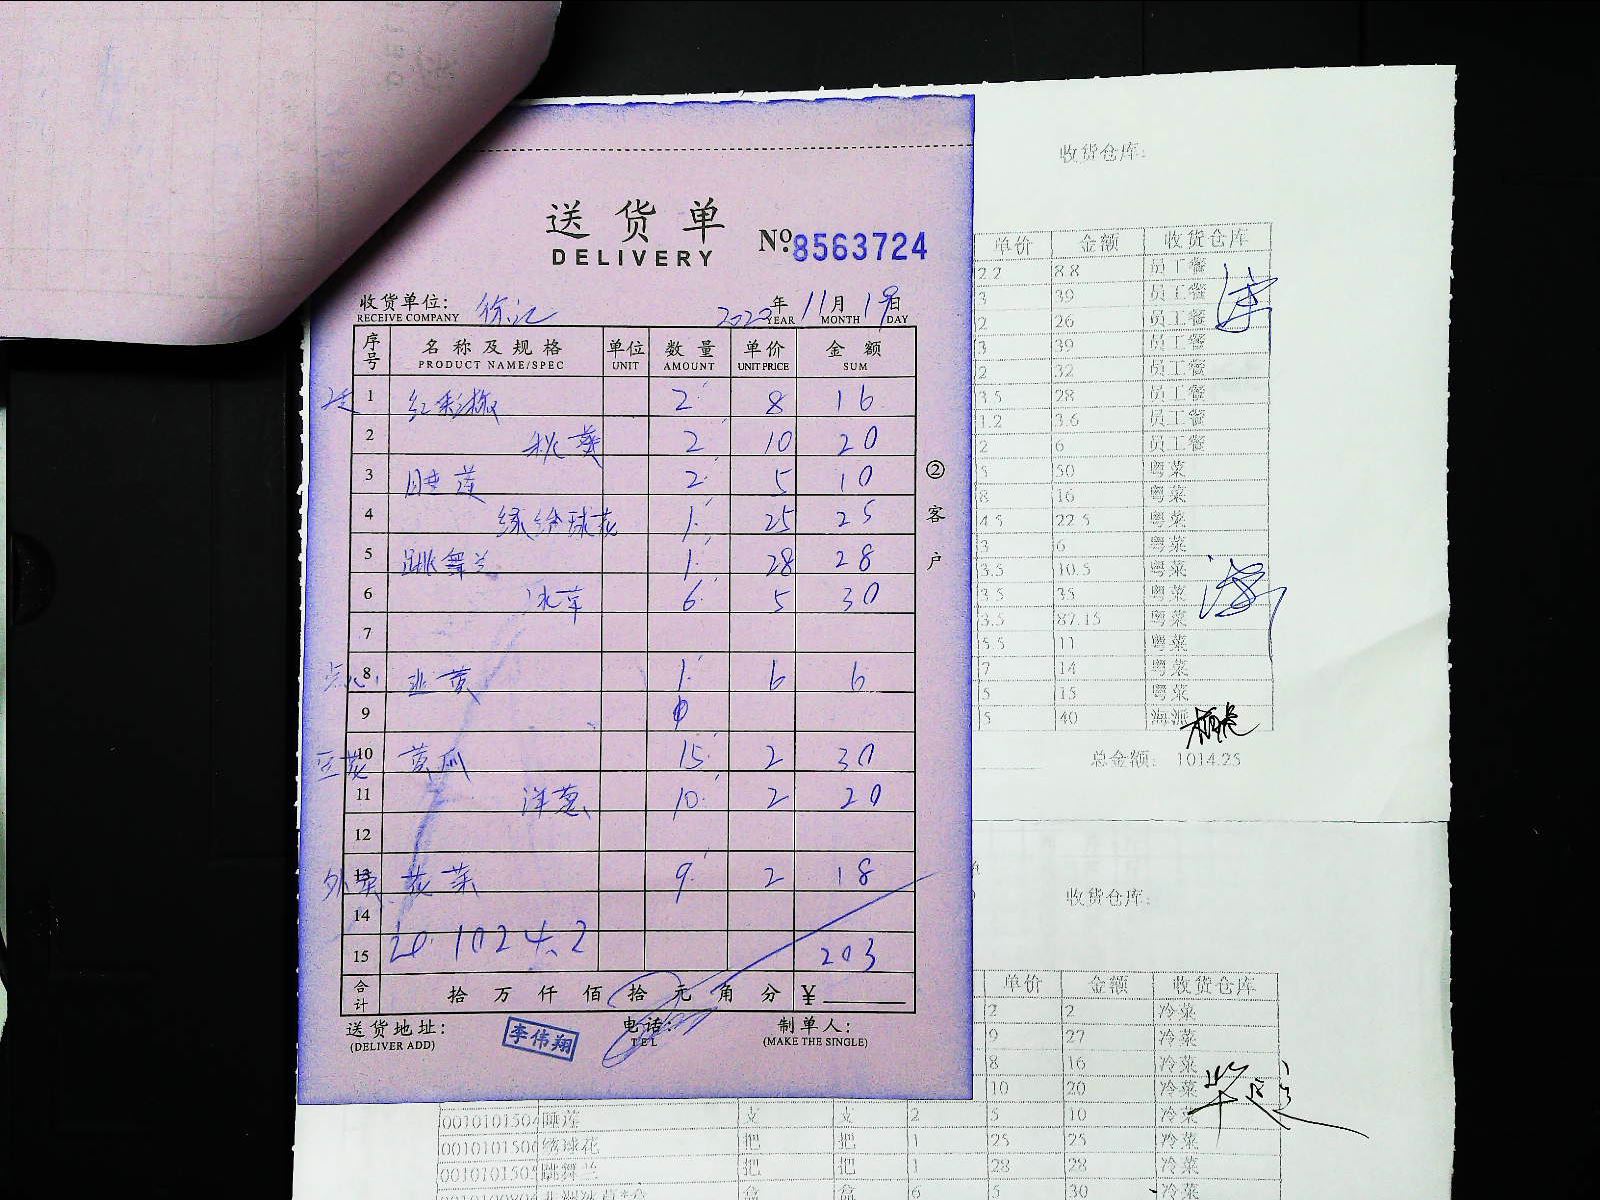 收货仓库:
送货单
DELIVERY
Nº 8563724
收货单位: 徐记 2020年 11月 19日
RECEIVE COMPANY YEAR MONTH DAY
序号 名称及规格 单位 数量 单价 金额
PRODUCT NAME/SPEC UNIT AMOUNT UNIT PRICE SUM
1 红彩椒 2 8 16
2 秋葵 2 10 20
3 睡莲 2 5 10
4 绿绣球花 1 25 25
5 跳舞兰 1 28 28
6 冰草 6 5 30
7
点心 8 韭黄 1 6 6
9
10 黄瓜 15 2 30
11 洋葱 10 2 20
12
13 花菜 9 2 18
14
15 1024.2 203
合计 拾 万 仟 佰 拾 元 角 分 ¥
送货地址: 电话: 制单人:
(DELIVER ADD) TEL (MAKE THE SINGLE)
李伟翔
②客户
单价 金额 收货仓库
2.2 8.8 员工餐
3 39 员工餐
2 26 员工餐
3 39 员工餐
2 32 员工餐
3.5 28 员工餐
1.2 3.6 员工餐
2 6 员工餐
5 50 粤菜
8 16 粤菜
4.5 22.5 粤菜
3 6 粤菜
3.5 10.5 粤菜
3.5 35 粤菜
3.5 87.15 粤菜
5.5 11 粤菜
7 14 粤菜
5 15 粤菜
5 40 海派
总金额: 1014.25
收货仓库:
单价 金额 收货仓库
2 2 冷菜
9 27 冷菜
8 16 冷菜
10 20 冷菜
001010150 睡莲 支 支 2 5 10 冷菜
001010150 绣球花 把 把 1 25 25 冷菜
001010150 跳舞兰 把 把 1 28 28 冷菜
盒 盒 6 5 30 冷菜